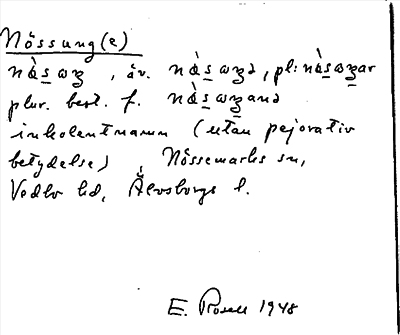 Nössung(e)
nò̀sωŋ, äv. nò̀sωŋə, pl: nò̀sωŋar
plur. best. f. nò̀sωŋanə
inkolentnamn (utan pejorativ
betydelse), Nössemarks sn,
Vedbo hd, Älvsborgs l.
E. 1948